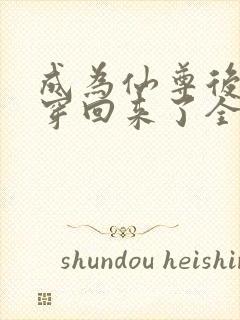 成為仙尊後
穿回來了全
shundou heishin